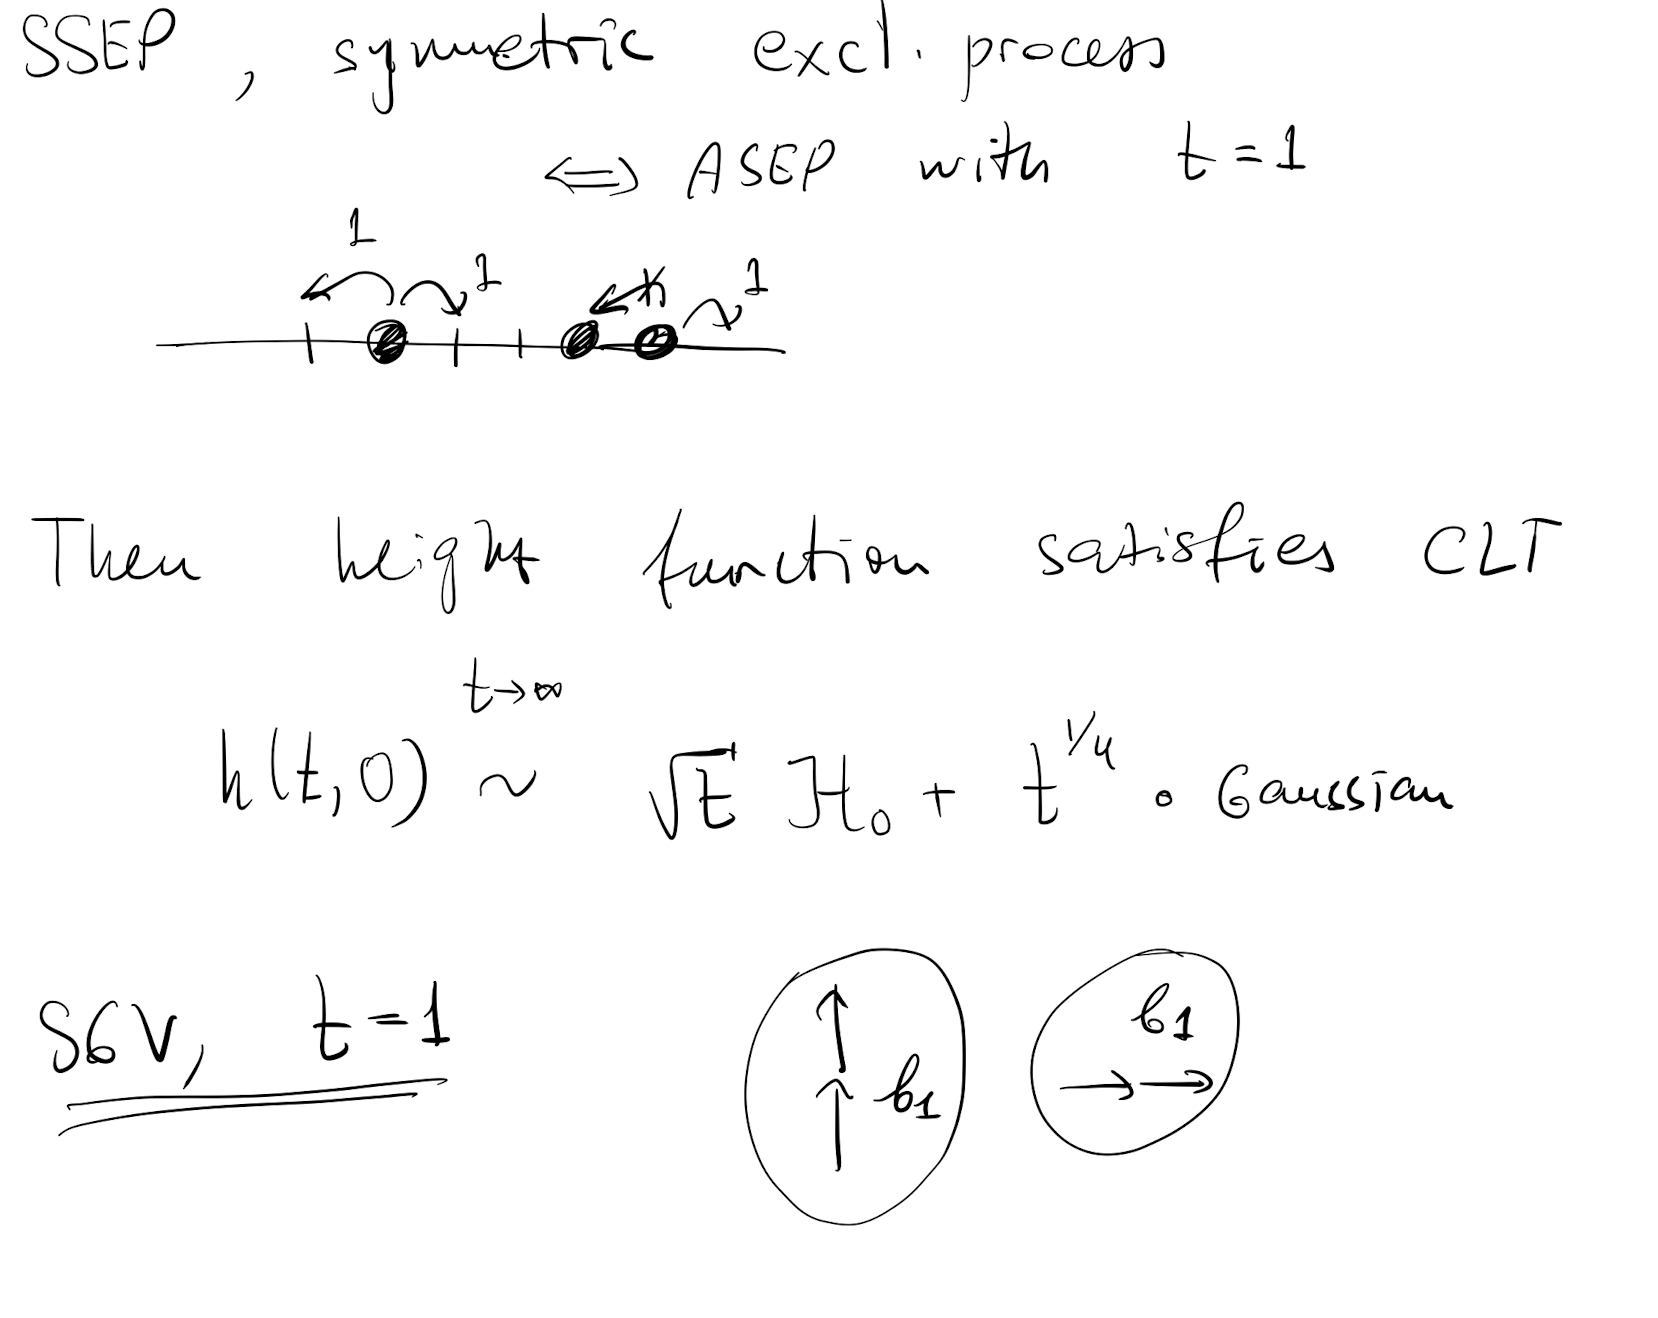 SSEP, symmetric excl. process
⟺ ASEP with t = 1
1 1 1
Then height function satisfies CLT
t→∞
h(t,0) ~ √t H₀ + t^{1/4} • Gaussian
S6V, t=1 b₁ b₁